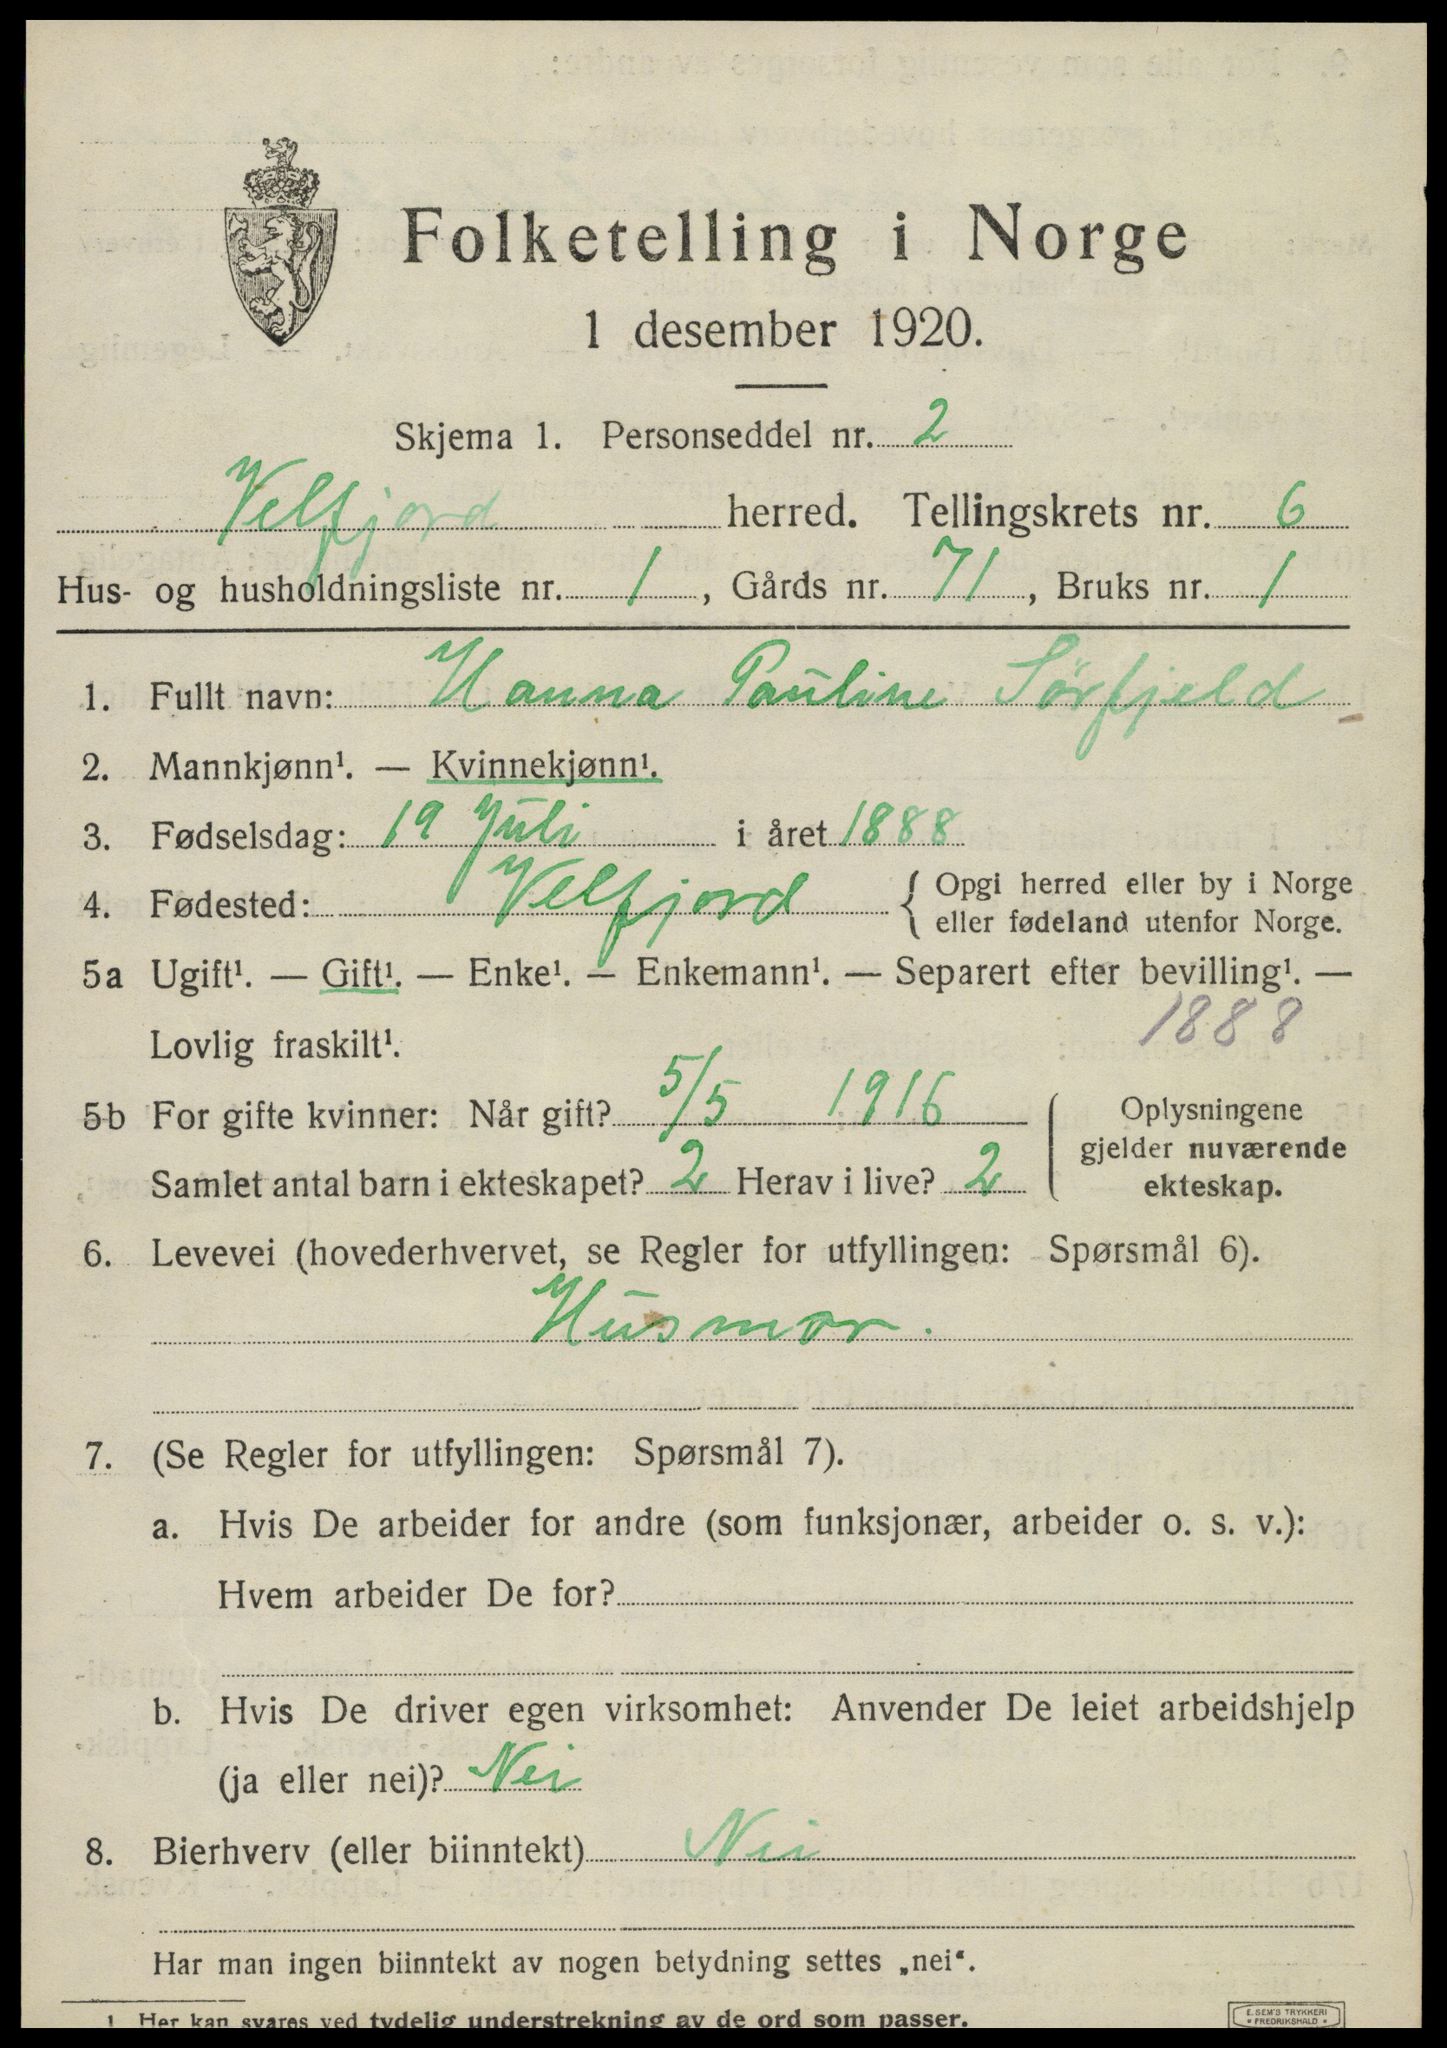 Folketelling i Norge
1 desember 1920.
Skjema 1. Personseddel nr. 2
Velfjord herred. Tellingskrets nr. 6
Hus- og husholdningsliste nr. 1, Gårds nr. 71, Bruks nr. 1
1. Fullt navn: Hanna Pauline Sørfjeld
2. Mannkjønn¹. — Kvinnekjønn¹.
3. Fødselsdag: 19 Juli i året 1888
4. Fødested: Velfjord { Opgi herred eller by i Norge
eller fødeland utenfor Norge.
5a Ugift¹. — Gift¹. — Enke¹. — Enkemann¹. — Separert efter bevilling¹. —
Lovlig fraskilt¹. 1888
5b For gifte kvinner: Når gift? 5/5 1916
Samlet antal barn i ekteskapet? 2 Herav i live? 2
Oplysningene
gjelder nuværende
ekteskap.
6. Levevei (hovederhvervet, se Regler for utfyllingen: Spørsmål 6).
Husmor.
7. (Se Regler for utfyllingen: Spørsmål 7).
a. Hvis De arbeider for andre (som funksjonær, arbeider o. s. v.):
Hvem arbeider De for?
b. Hvis De driver egen virksomhet: Anvender De leiet arbeidshjelp
(ja eller nei)? Nei
8. Bierhverv (eller biinntekt) Nei
Har man ingen biinntekt av nogen betydning settes „nei“.
1 Her kan svares ved tydelig understrekning av de ord som passer.
E. SEM'S TRYKKERI
• FREDRIKSHALD •